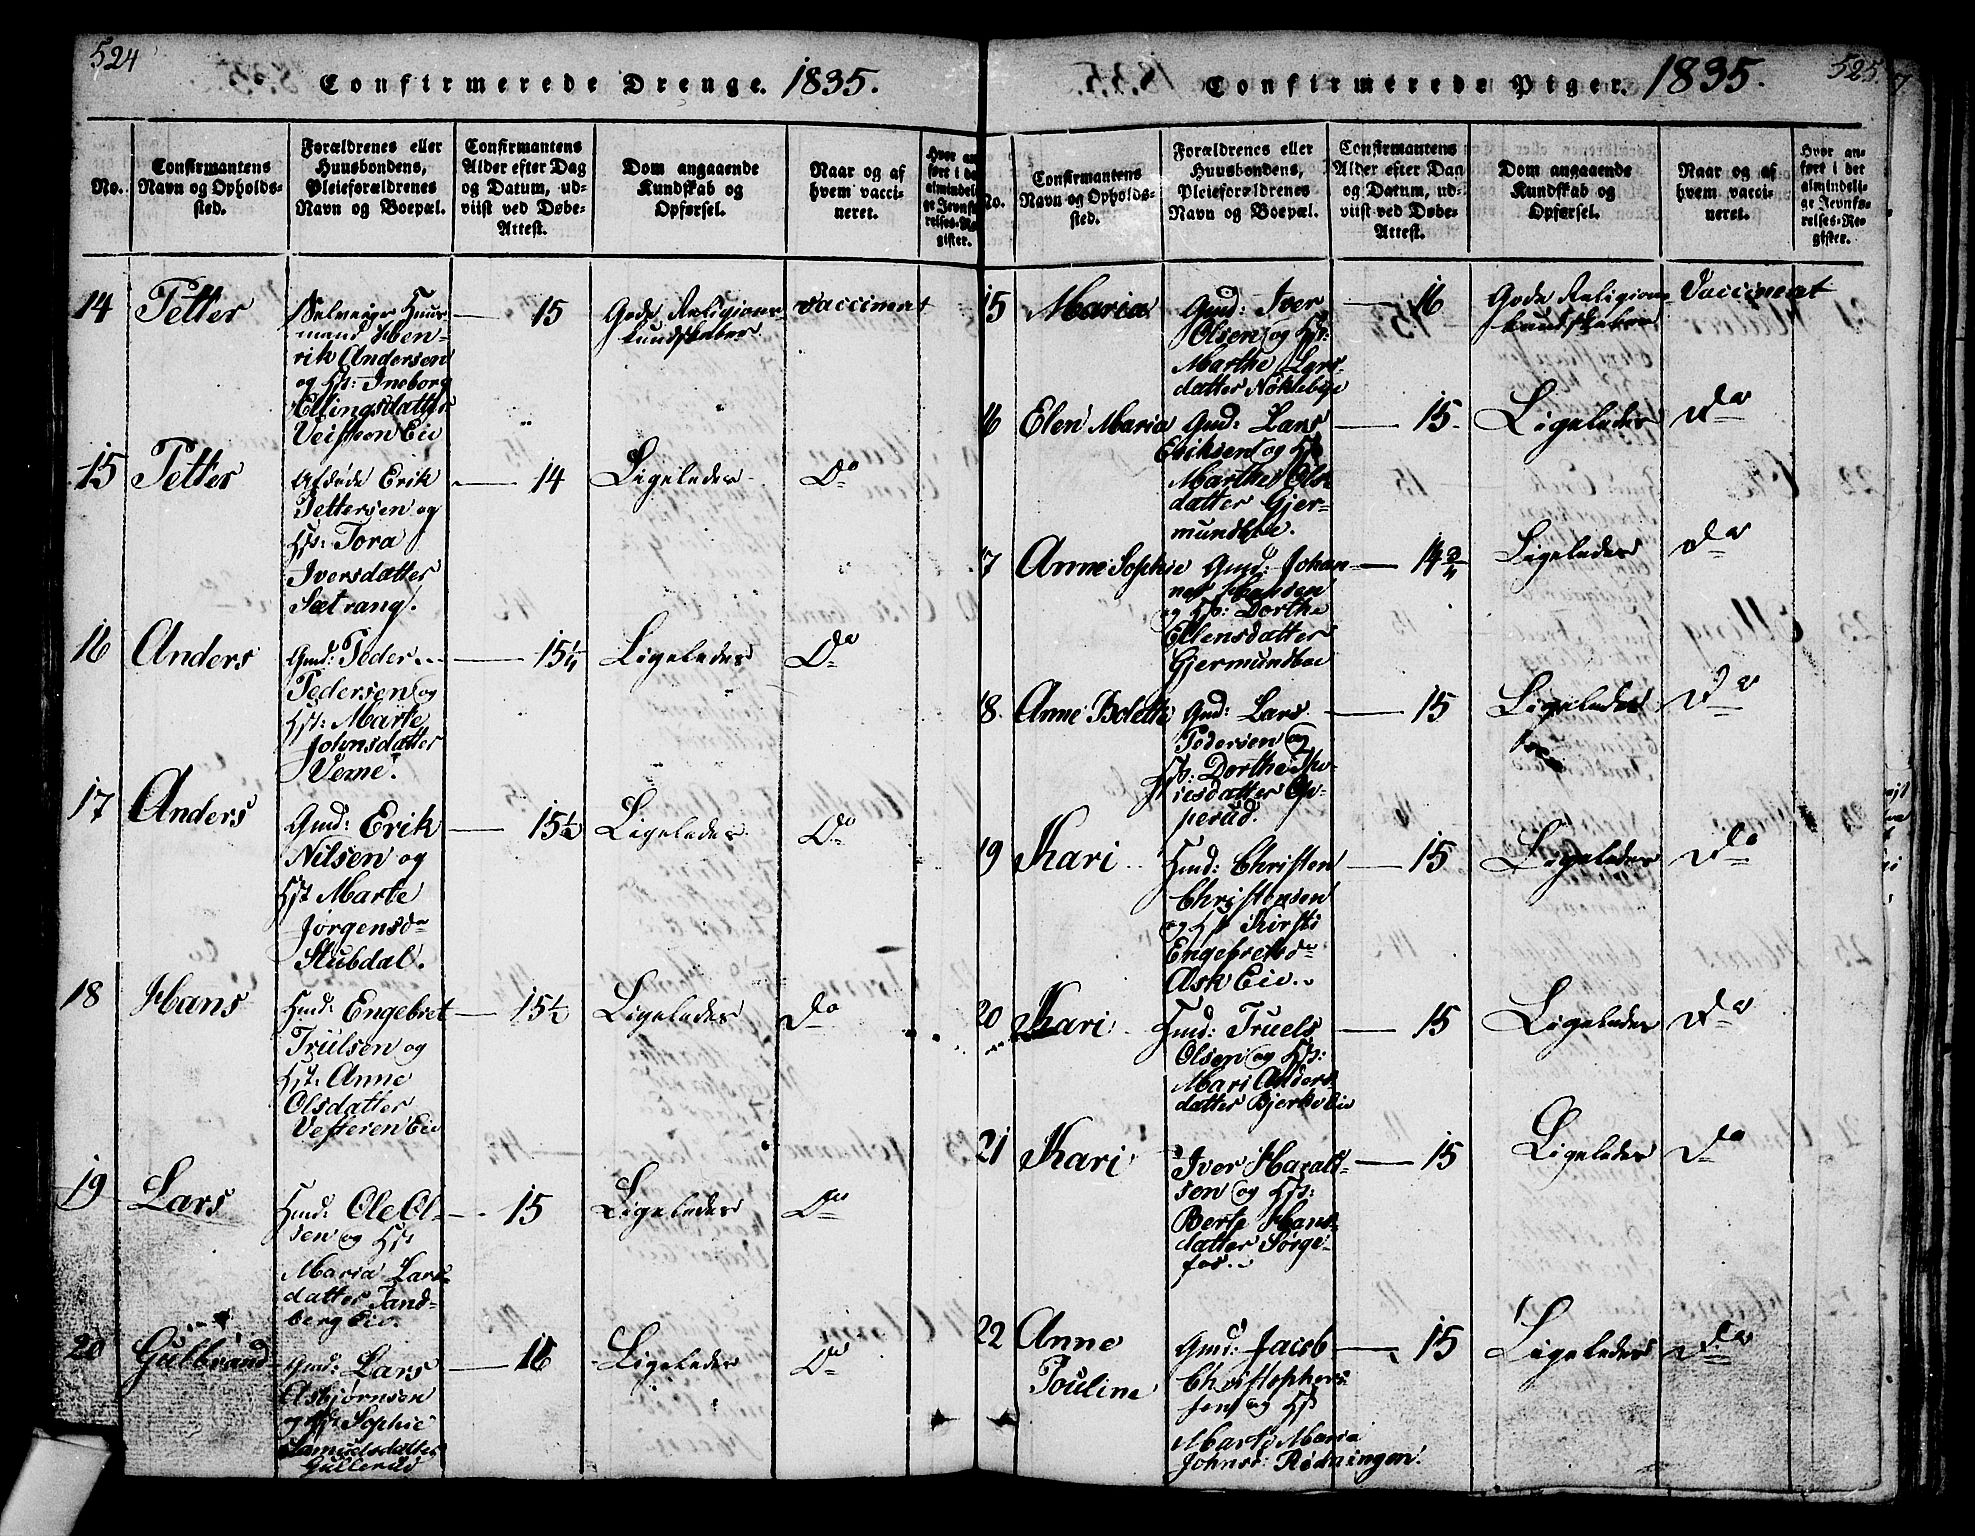 524
Confirmerede Drenge. 1835.
No.
Confirmantens
Navn og Opholds-
sted.
Forældrenes eller
Huusbondens,
Pleieforældrenes
Navn og Boepæl.
Confirmantens
Alder efter Dag
og Datum, ud-
viist ved Døbe-
Attest.
Dom angaaende
Kundskab og
Opførsel.
Naar og af
hvem vacci-
neret.
Hvor an-
ført i det
almindeli-
ge Jevnfø-
relses-Re-
gister.
14 Petter
Selveiger Huus-
mand Hen-
rik Andersen
og Hst: Ineborg
Ellingsdatter
Veisteen Eie
15
Gode Religions-
kundskaber
vaccineret
15 Petter
Afdøde Erik
Pettersen og
Hst: Tora
Iversdatter
Sætrang.
14
Ligeledes
Do
16 Anders
Gmd: Peder
Pedersen og
Hst: Marte
Johnsdatter
Veme.
15¼
Ligeledes
Do
17 Anders
Gmd: Erik
Nilsen og
Hst Marte
Jørgensd
Stubdal.
15½
Ligeledes
Do
18 Hans
Hmd: Engebret
Trulsen og
Hst: Anne
Olsdatter
Vesteren Eie
15½
Ligeledes
Do
19 Lars
Hmd: Ole Ol-
sen og Hst
Maria Lars-
datter Tand-
berg Eie
15
Ligeledes
Do
20 Gulbrand
Gmd: Lars
Asbjørnsen
og Hst Sophie
Samuelsdatter
Gullerud
16
Ligeledes
Do
525.
Confirmerede Piger. 1835.
No.
Confirmantens
Navn og Opholds-
sted.
Forældrenes eller
Huusbondens,
Pleieforældrenes
Navn og Boepæl.
Confirmantens
Alder efter Dag
og Datum, ud-
viist ved Døbe-
Attest.
Dom angaaende
Kundskab og
Opførsel.
Naar og af
hvem vacci-
neret.
Hvor an-
ført i det
almindeli-
ge Jevnfø-
relses-Re-
gister.
15 Maria
Gmd: Iver
Olsen og Hst:
Marthe Lars-
datter Nøklebye
16
Gode Religions
kundskaber
Vaccineret
16 Elen Maria
Gmd: Lars
Eriksen og Hst
Marthe Ols
datter Gjer-
mundboe.
15
Ligeledes
Do
17 Anne Sophie
Gmd: Johan-
nes Hansen
og Hst: Dorthe
Ellensdatter
Gjermundboe
14¾
Ligeledes
Do
18 Anne Bolette
Gmd: Lars
Pedersen og
Hst: Dorthe
datter Op-
perud.
15
Ligeledes
Do
19 Kari
Hmd: Christen
Christensen
og Hst Kirsti
Engebretsd
Ask Eie
15
Ligeledes
Do
20 Kari
Hmd: Truels
Olsen og Hst:
Mari Anders-
datter Bjerke Eie
15
Ligeledes
Do
21 Kari
Iver Harald-
sen og Hst:
Berte Hans-
datter Sørge-
fos
15
Ligeledes
Do
22 Anne
Pouline
Gmd: Jacob
Christophers-
sen og Hst
Marte Maria
Johnsd: Rødningen
15
Ligeledes
Do